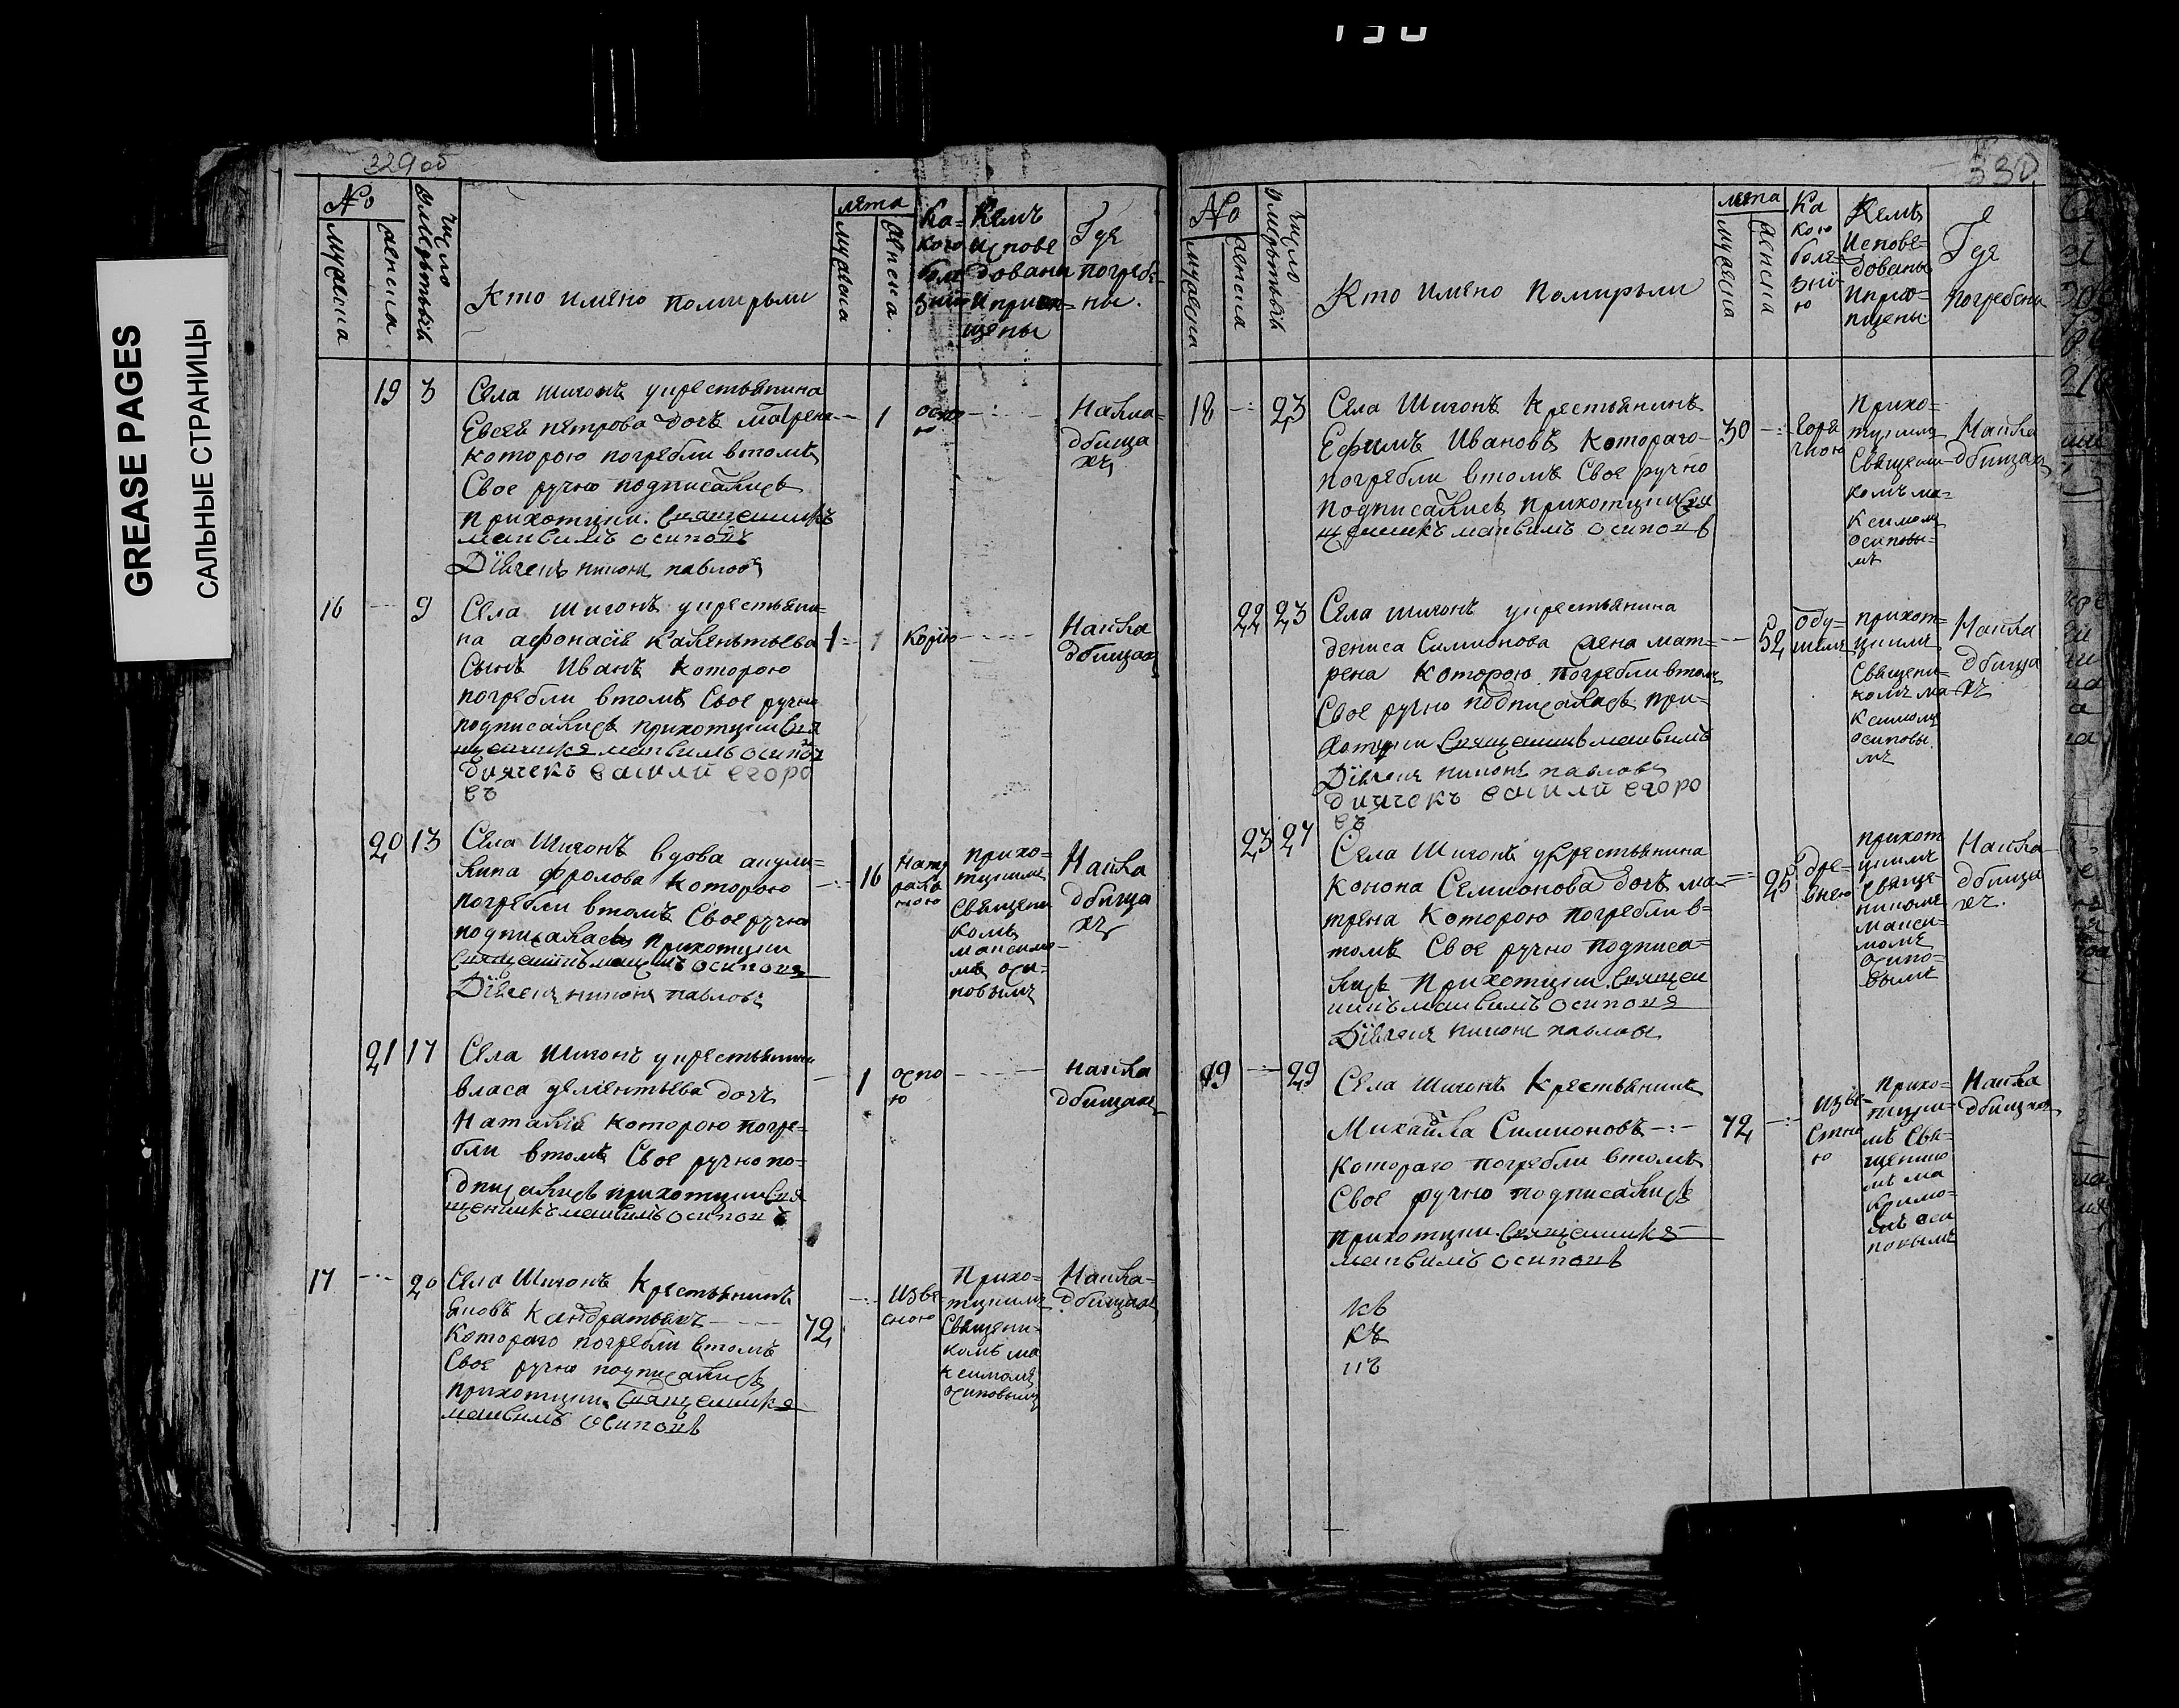 GREASE PAGES
САЛЬНЫЕ СТРАНИЦЫ
329об
№
мужеска
женска
число умертвїѣ
Кто имено помирыли
лета
мужеска
женска
Ка-
кою
боле
знию
Кемъ
испове
дованы
и приоп-
щены
Где
погребе-
ны.
19 3
Села Шигонъ укрестьянина
Евсея петрова дочь матрена
которою погребли втомъ
Свое ручно подписались
прихотцки. Священникъ
Осиповъ
павловъ
1
оспо
ю
Накла-
дбища
хъ
16 9
Села Шигонъ укрестьяни-
на афонасия
Сынъ Иванъ которою
погребли втомъ Свое ручно
подписались прихотцки Свя
щенникъ Осиповъ
диячекъ василй егоро
въ
1
Корїю
Накла
дбищахъ
20 13
Села Шигонъ вдова акули-
лина фролова которою
погребли втомъ Свое ручно
подписались прихотцки
Осиповъ
павловъ
16
Нату
раль
ною
прихо-
тцкимъ
Священи
комъ
максимо-
мъ оси-
повымъ
Накла
дбища
хъ
21 17
Села Шигонъ укрестьянина
власа дементьева дочь
Наталия которою погре-
бли втомъ Свое ручно по-
дписались прихотцки Свя
щенникъ Осиповъ
1
оспо
ю
накла
дбищахъ
17 20
Села Шигонъ Крестьянинъ
Яковъ Кандратьевъ
Котораго погребли втомъ
Свое ручно подписались
прихотцки. Священникъ
Осиповъ
72
Изве
сною
Прихо-
тцкимъ
Священи-
комъ ма
ксимомъ
осиповымъ
Накла-
дбищахъ
330
№
мужеска
женска
число умертвїѣ
Кто имено помирыли
лета
мужеска
женска
Ка
кою
боле-
зни-
ю
Кемъ
Испове-
дованы
Где
погребены
18 23
Села Шигонъ Крестьянинъ
Ефимъ Ивановъ Котораго
погребли втомъ Свое ручно
подписались прихотцки Свя
щенникъ Осиповъ
30
горя
чкою
Прихо-
тцкимъ
Священи-
комъ ма-
ксимомъ
осиповы-
мъ
Накла
дбищахъ
22 23
Села Шигонъ укрестьянина
дениса Симионова жена мат-
рена Которою погребли втомъ
Свое ручно подписались при-
хотцки
павловъ
диячекъ василй егоро
въ
52
оду-
шкою
прихот-
цкимъ
Священи-
комъ ма
ксимомъ
осиповы
мъ
Накла
дбища
хъ
23 27
Села Шигонъ укрестьянина
Конона Семионова дочь ма-
трена Которою погребли в-
томъ Свое ручно подписа-
лись Прихотцки. Священ
Осиповъ
павловъ
25
прихот
цкимъ
Свяще-
никомъ
макси-
момъ
осипо-
вымъ
Накла
дбища
хъ.
19 29
Села Шигонъ Крестьянинъ
Михайла Симионовъ
Котораго погребли втомъ
Свое ручно подписались
прихотцки. Священникъ
Осиповъ
72
изве-
стно
ю
Прихо-
тцки-
мъ Свя-
щенико
мъ ма
ксимо-
мъ оси
повымъ
Накла
дбищахъ